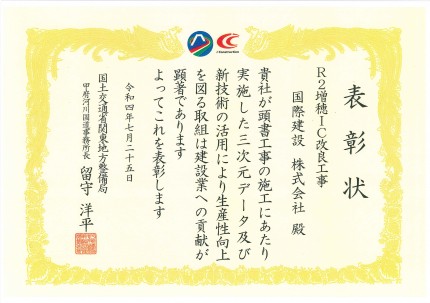 表彰状
R2増穂IC改良工事
国際建設 株式会社 殿
貴社が頭書工事の施工にあたり
実施した三次元データ及び
新技術の活用により生産性向上
を図る取組は建設業への貢献が
顕著であります
よってこれを表彰します
令和四年七月二十五日
国土交通省関東地方整備局
甲府河川国道事務所長 留守 洋平